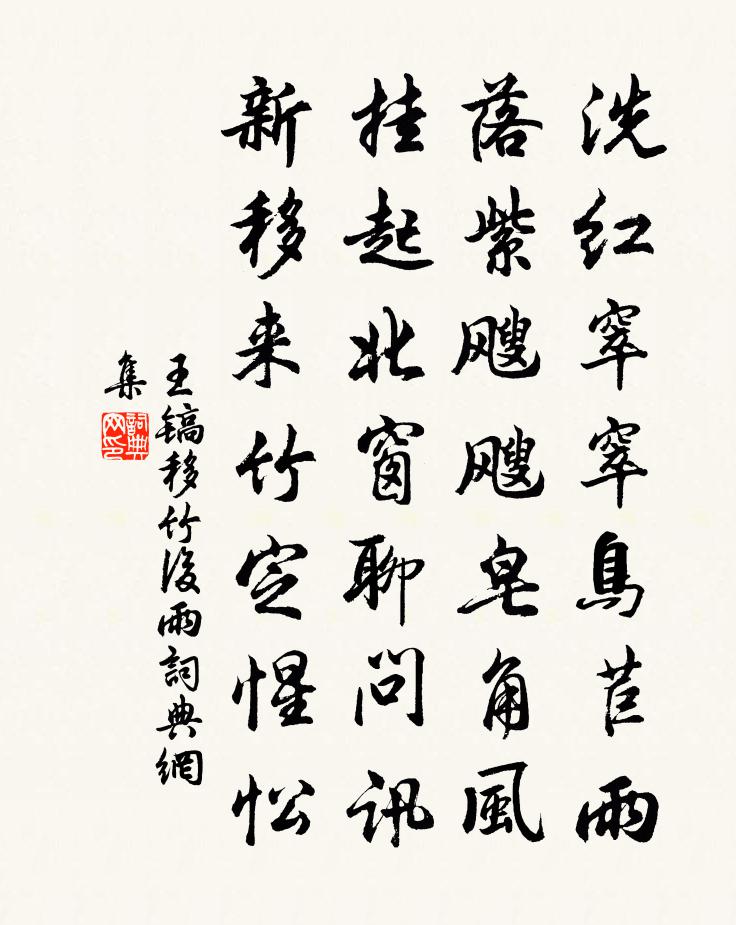 洗红窣窣鳥苣雨
落紫飕飕皂角風
挂起北窗聊问讯
新移来竹定惺忪
王镐移竹後雨詞典網
集
詞典网印